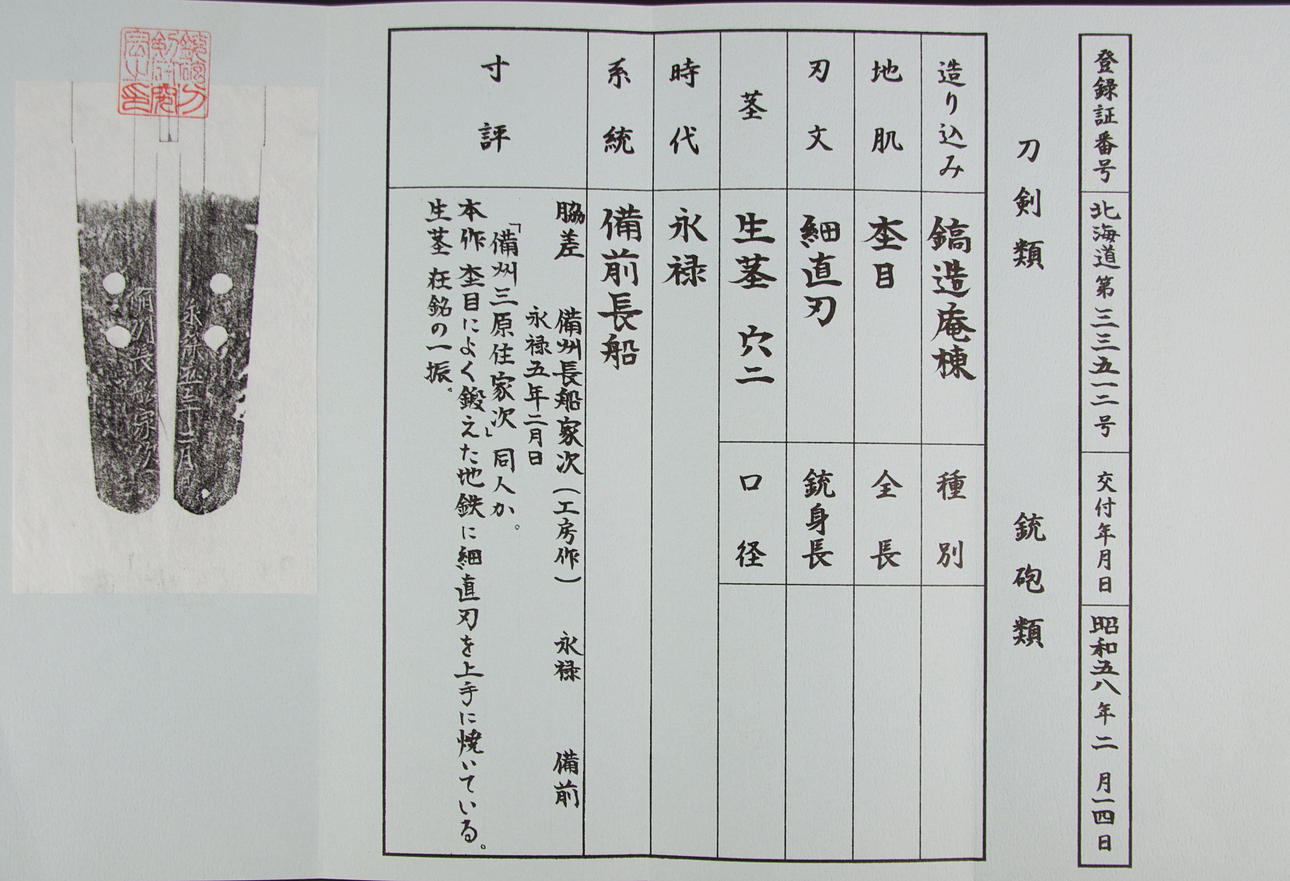 登録証番号 北海道 第 三三五一二 号 交付年月日 昭和五八年 二 月一四日
刀剣類 銃砲類
造り込み 鎬造庵棟 種別
地肌 杢目 全長
刃文 細直刃 銃身長
茎 生茎 穴二 口径
時代 永禄
系統 備前長船
寸評
脇差 備州長船家次(工房作) 永禄 備前
永禄五年二月日
「備州三原住家次」同人か。
本作 杢目によく鍛えた地鉄に細直刃を上手に焼いている。
生茎 在銘の一振。
永禄五年二月日
備州長船家次